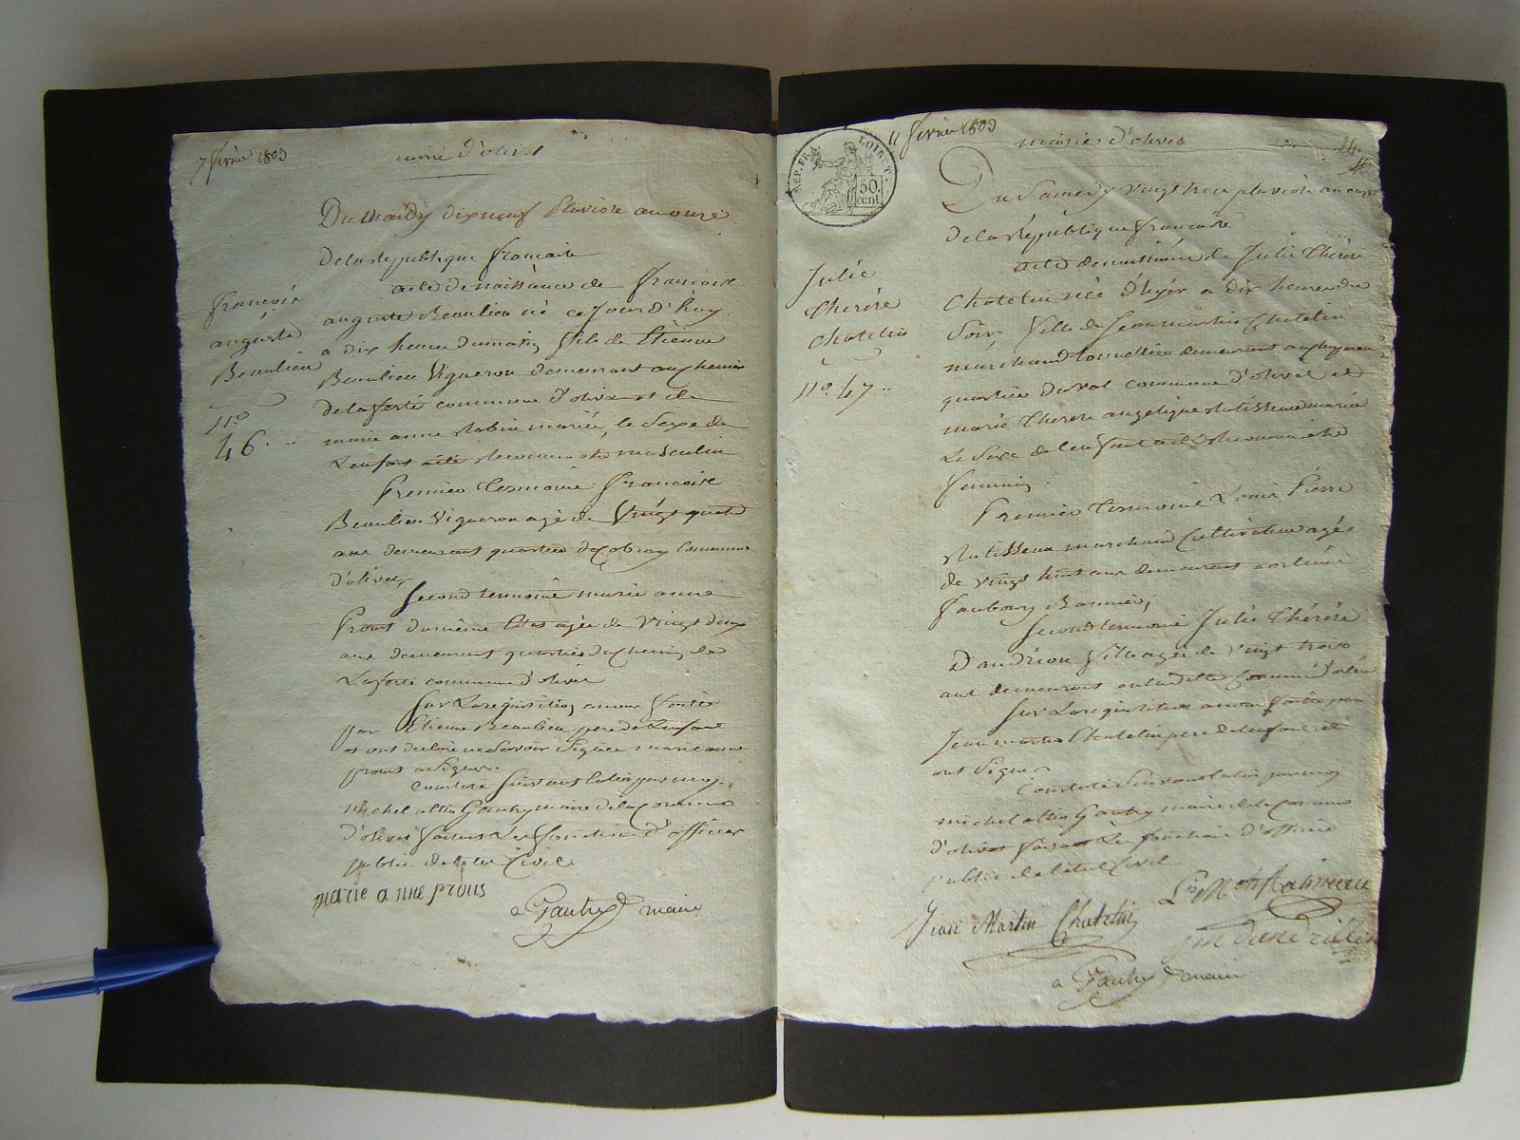 7 février 1803
mairie d'olivet
Du Mardy dixneuf Pluviose an onze
De la republique francaise
acte de naissance de francois
auguste Beaulieu né ce Jourd'huy
a dix heures du matin fils de Etienne
Beaulieu Vigneron demeurant au chemin
de la ferté commune d'olivet et de
marie anne Robin mariée, le Sexe de
L'enfant a été Reconnu etre masculin
Premier temoin francoise
Beaulieu Vigneron agé de Vingt quatre
ans demeurant quartier de Commune
d'olivet
Second temoin marie anne
Prous du même Etat agée de Vingt deux
ans demeurant quartier du Chemin de
Laferté commune d'olivet
Sur La requisition a nous faite
par Etienne Beaulieu pere de L'enfant
et ont declaré ne Savoir Signer marie anne
prous a Signé.
Constaté Suivant la loi par moy
michel altin Gautry maire de la Commune
d'olivet faisant Les fonctions d'officier
public de l'etat Civil
marie anne prous
a Gautry maire
françois
auguste
Beaulieu
n°
46.
11 février 1803
REP. FRA. LOIRET
50.
cent
mairie d'olivet
24.
Du Samedy vingt trois pluviose an onze
de la République francaise
acte de naissance de Julie Thérèse
Chatelin née d'hyer a dix heures du
Soir, fille de Jean martin Chatelin
marchand tonnellier demeurant au
quartier du val commune d'olivet et
marie Therese angelique Rutisseau mariée
Le Sexe de l'enfant a été Reconnu etre
feminin.
Premier temoin Louis Pierre
Rutisseau marchand Cultivateur agé
de vingt huit ans demeurant a orléans
faubourg Bannier,
Second temoin Julie Thérèse
Dandrion fille agée de Vingt trois
ans demeurant a Commune d'olivet
Sur La requisition a nous faite par
Jean martin Chatelin pere de l'enfant et
ont Signé.
Constaté Suivant la loi par moy
michel altin Gautry maire de la Commune
d'olivet faisant Les fonctions d'officier
Public de l'etat Civil
Jean Martin Chatelin
a Gautry maire
Julie
Thérèse
Chatelin
n° 47.